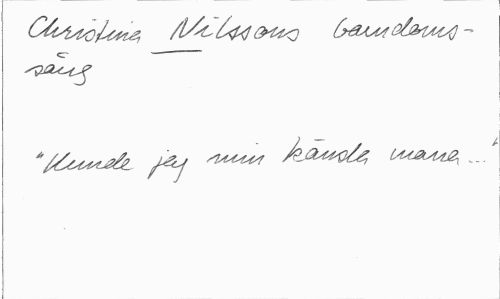 Christina Nilssons barndoms-
sång
"Kunde jag min känsla mana..."